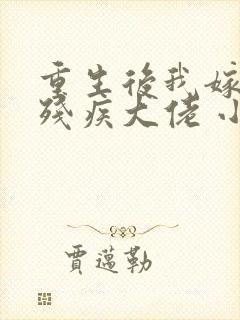 重生後我嫁
殘疾大佬小
賈邁勒